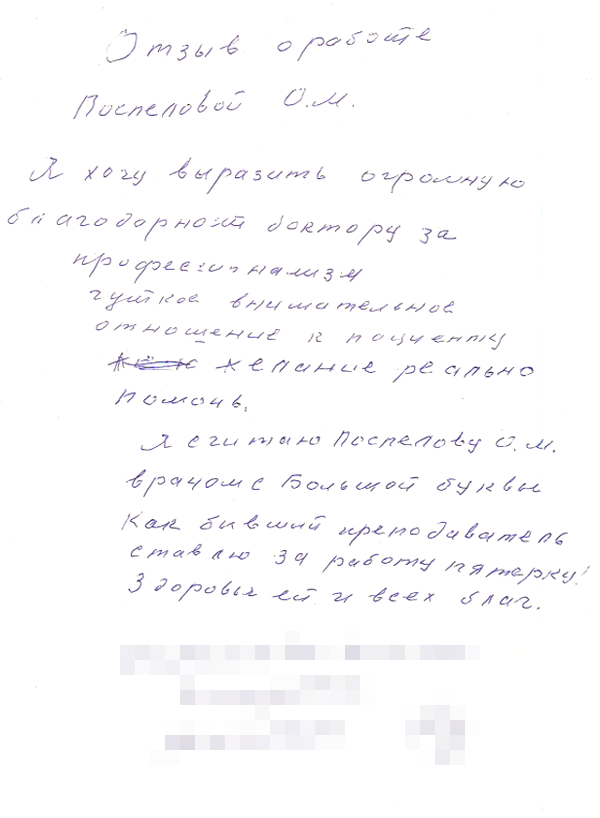 Отзыв о работе
Поспеловой О.М.
Я хочу выразить огромную
благодарность доктору за
профессионализм
чуткое внимательное
отношение к пациенту
желание реально
помочь.
Я считаю Поспелову О.М.
врачом с Большой буквы
Как бывший преподаватель
ставлю за работу пятерку!
Здоровья ей и всех благ.